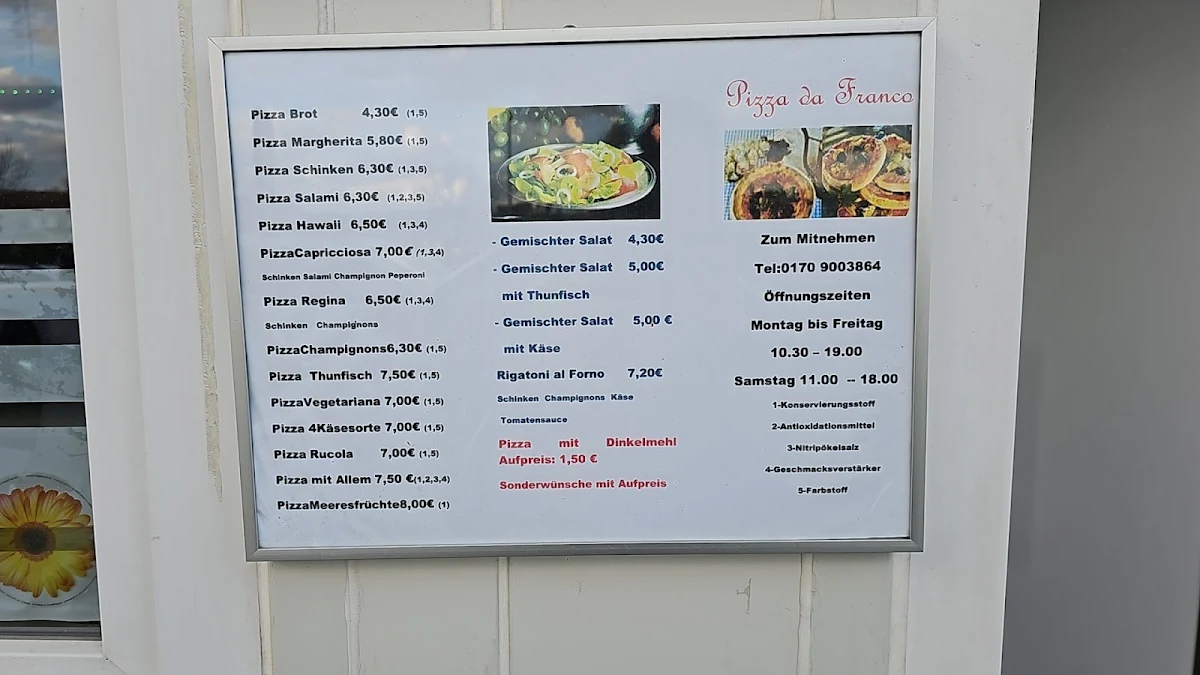 Pizza Brot 4,30€ (1,5)
Pizza Margherita 5,80€ (1,5)
Pizza Schinken 6,30€ (1,3,5)
Pizza Salami 6,30€ (1,2,3,5)
Pizza Hawaii 6,50€ (1,3,4)
PizzaCapricciosa 7,00€ (1,3,4)
Schinken Salami Champignon Peperoni
Pizza Regina 6,50€ (1,3,4)
Schinken Champignons
PizzaChampignons6,30€ (1,5)
Pizza Thunfisch 7,50€ (1,5)
PizzaVegetariana 7,00€ (1,5)
Pizza 4Käsesorte 7,00€ (1,5)
Pizza Rucola 7,00€ (1,5)
Pizza mit Allem 7,50 €(1,2,3,4)
PizzaMeeresfrüchte8,00€ (1)
- Gemischter Salat 4,30€
- Gemischter Salat 5,00€
mit Thunfisch
- Gemischter Salat 5,00 €
mit Käse
Rigatoni al Forno 7,20€
Schinken Champignons Käse
Tomatensauce
Pizza mit Dinkelmehl
Aufpreis: 1,50 €
Sonderwünsche mit Aufpreis
Pizza da Franco
Zum Mitnehmen
Tel:0170 9003864
Öffnungszeiten
Montag bis Freitag
10.30 – 19.00
Samstag 11.00 -- 18.00
1-Konservierungsstoff
2-Antioxidationsmittel
3-Nitripökelsalz
4-Geschmacksverstärker
5-Farbstoff